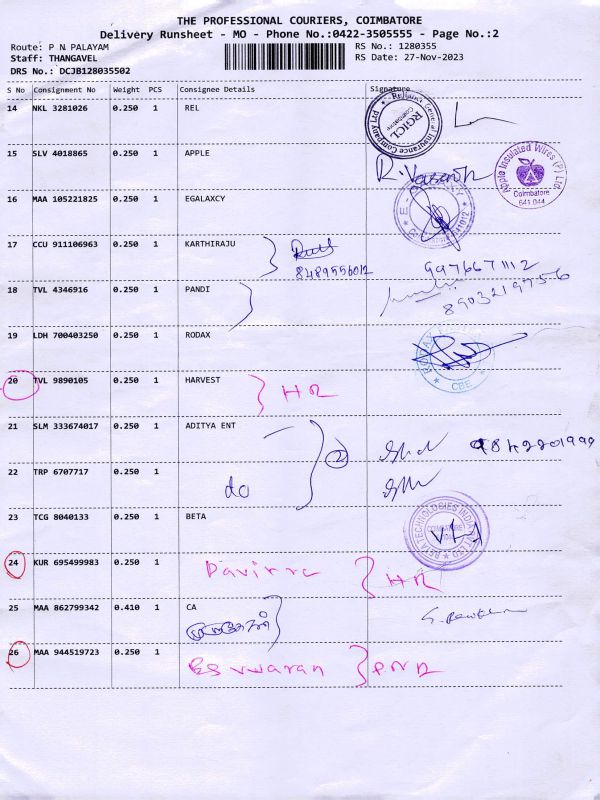 THE PROFESSIONAL COURIERS, COIMBATORE
Delivery Runsheet - MO - Phone No.:0422-3505555 - Page No.:2
Route: P N PALAYAM
RS No.: 1280355
Staff: THANGAVEL
RS Date: 27-Nov-2023
DRS No.: DCJB128035502
S No Consignment No Weight PCS Consignee Details Signature
14 NKL 3281026 0.250 1 REL
Reliance General Insurance Company Ltd
RGICL
15 SLV 4018865 0.250 1 APPLE
R. Vasanth
Apple Insulated Wires (P) Ltd.
Coimbatore
641 044
16 MAA 105221825 0.250 1 EGALAXCY
17 CCU 911106963 0.250 1 KARTHIRAJU
8489556012
9976671112
18 TVL 4346916 0.250 1 PANDI
8903219756
19 LDH 700403250 0.250 1 RODAX
CBE
20 TVL 9890105 0.250 1 HARVEST
21 SLM 333674017 0.250 1 ADITYA ENT
2
22 TRP 6707717 0.250 1
do
23 TCG 8040133 0.250 1 BETA
TECHNOLOGIES INDIA
24 KUR 695499983 0.250 1
25 MAA 862799342 0.410 1 CA
26 MAA 944519723 0.250 1 Eswwaran